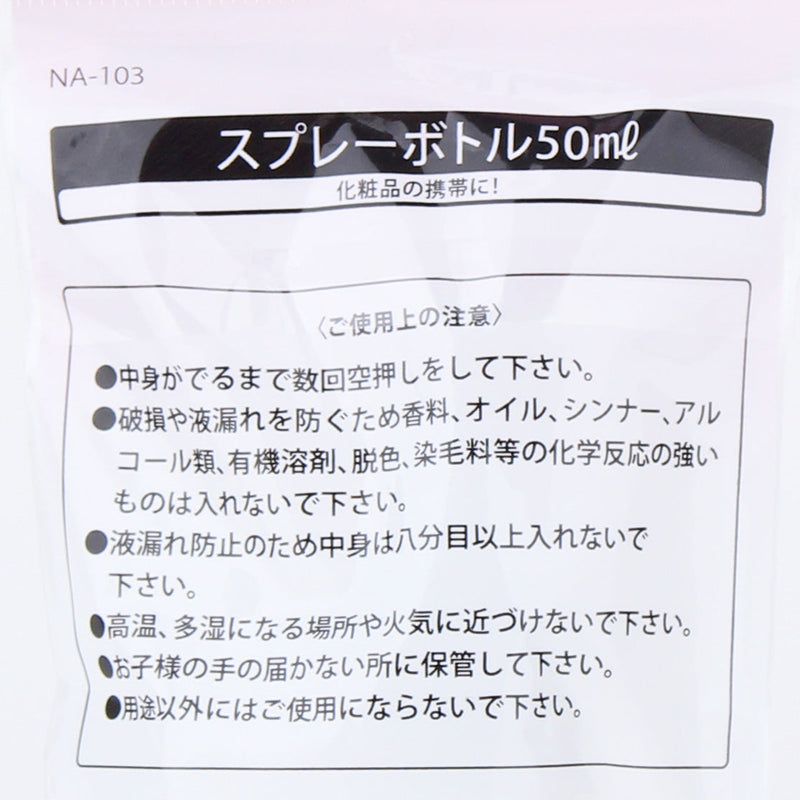 NA-103
スプレーボトル50㎖
化粧品の携帯に!
〈ご使用上の注意〉
●中身がでるまで数回空押しをして下さい。
●破損や液漏れを防ぐため香料、オイル、シンナー、アル
コール類、有機溶剤、脱色、染毛料等の化学反応の強い
ものは入れないで下さい。
●液漏れ防止のため中身は八分目以上入れないで
下さい。
●高温、多湿になる場所や火気に近づけないで下さい。
●お子様の手の届かない所に保管して下さい。
●用途以外にはご使用にならないで下さい。